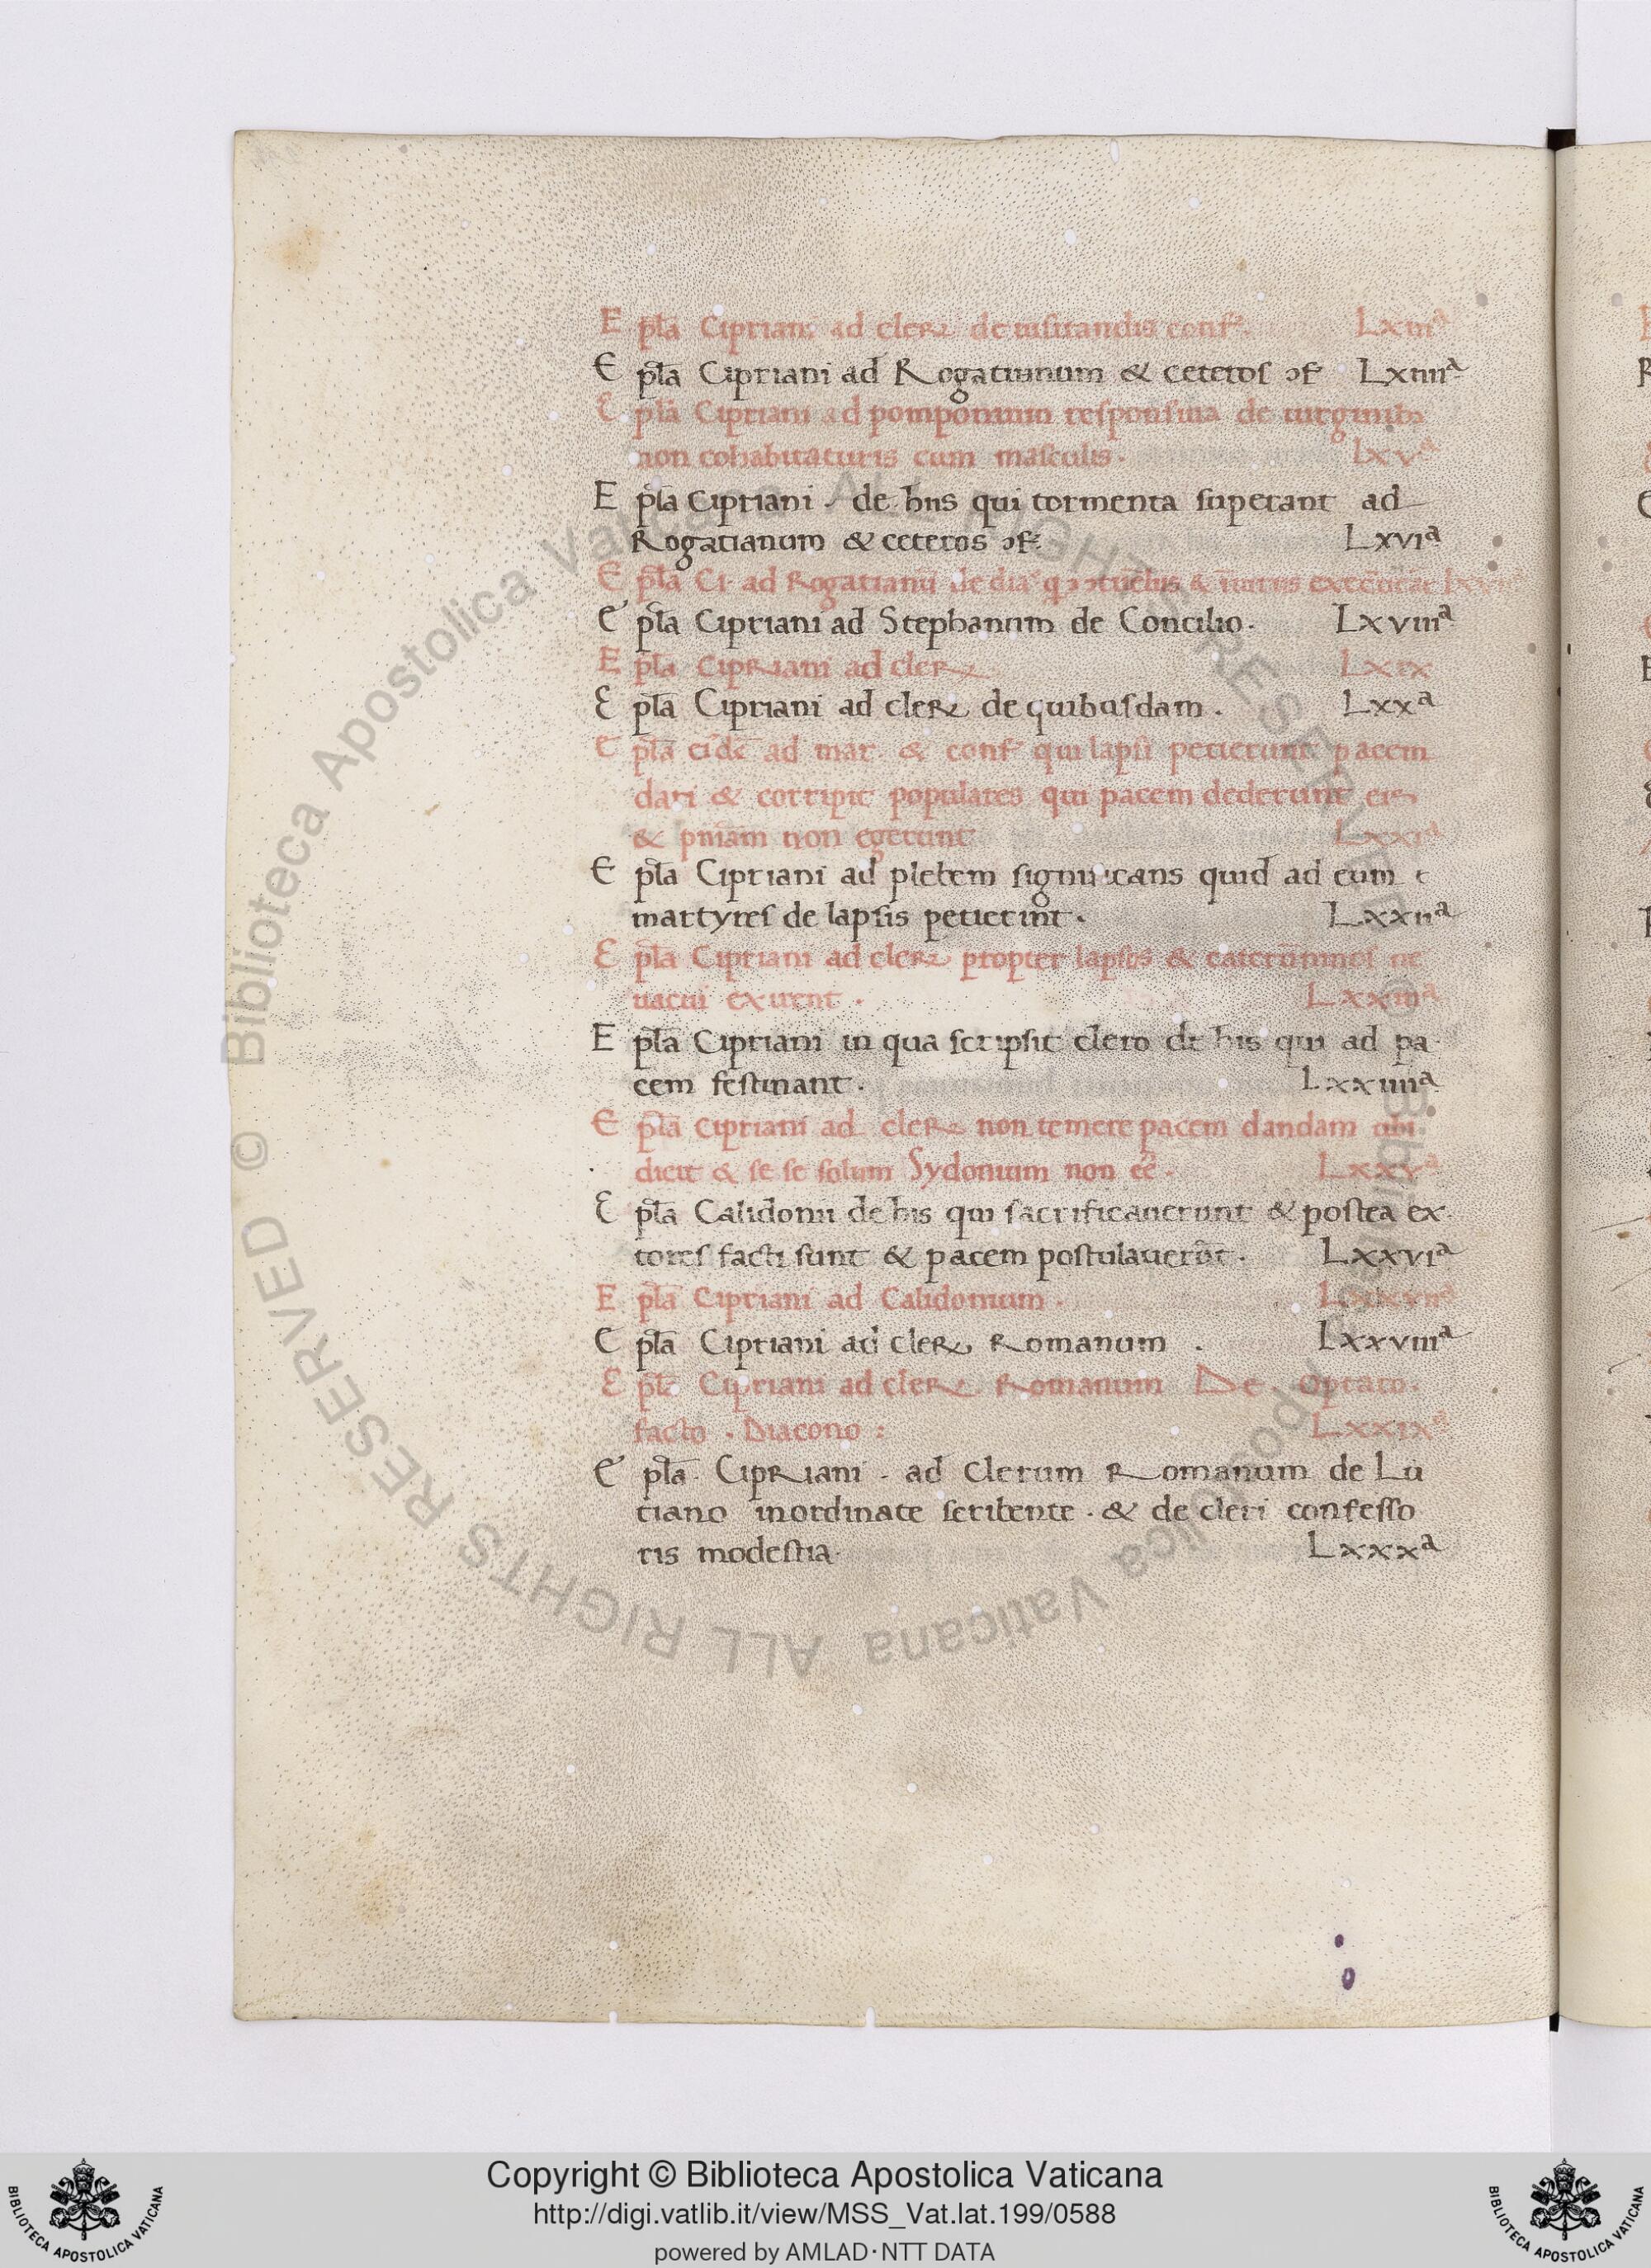 E pl̄a Cipriani ad clerꝝ de uisitandis conf. Lxiiiª
E pl̄a Cipriani ad Rogatianum & ceteros ↄf Lxiiiiª
E pl̄a Cipriani ad pomponium responsiua de uirginib;
non cohabitaturis cum masculis. Lxvª
E pl̄a Cipriani. de hiis qui tormenta superant ad
Rogatianum & ceteros ↄf. Lxviª
E pl̄a Ci. ad Rogatianū de
E pl̄a Cipriani ad Stephanum de Concilio. Lxviiiª
E pl̄a Cipriani ad clerꝝ Lxix
E pl̄a Cipriani ad clerꝝ de quibusdam. Lxxª
E pl̄a eidē ad mar. & conf. qui lapsi petierunt pacem
dari & corripit populares qui pacem dederunt eis
& pniam non egerunt Lxxiª
E pl̄a Cipriani ad plebem significans quid ad eum
martyres de lapsis petierint. Lxxiiª
E pl̄a Cipriani ad clerꝝ propter lapsos & ne
uacui exirent. Lxxiiiª
E pl̄a Cipriani in qua scripsit clero de his qui ad pa
cem festinant. Lxxiiiiª
E pl̄a Cipriani ad clerꝝ non temere pacem dandam ubi
dicit & se se solum Sydonium non eē. Lxxvª
E pl̄a Calidonii de his qui sacrificauerunt & postea ex
tores facti sunt & pacem postulauerūt. Lxxviª
E pl̄a Cipriani ad Calidonium. Lxxviiª
E pl̄a Cipriani ad clerꝝ Romanum. Lxxviiiª
E pl̄a Cipriani ad clerꝝ Romanum De. optato.
facto. Diacono: Lxxixª
E pl̄a. Cipriani. ad Clerum Romanum de Lu
tiano inordinate scribente. & de cleri confesso
ris modestia. Lxxxª
© Biblioteca Apostolica Vaticana ALL RIGHTS RESERVED
© Biblioteca Apostolica Vaticana ALL RIGHTS RESERVED
Copyright © Biblioteca Apostolica Vaticana
http://digi.vatlib.it/view/MSS_Vat.lat.199/0588
powered by AMLAD·NTT DATA
BIBLIOTECA APOSTOLICA VATICANA
BIBLIOTECA APOSTOLICA VATICANA